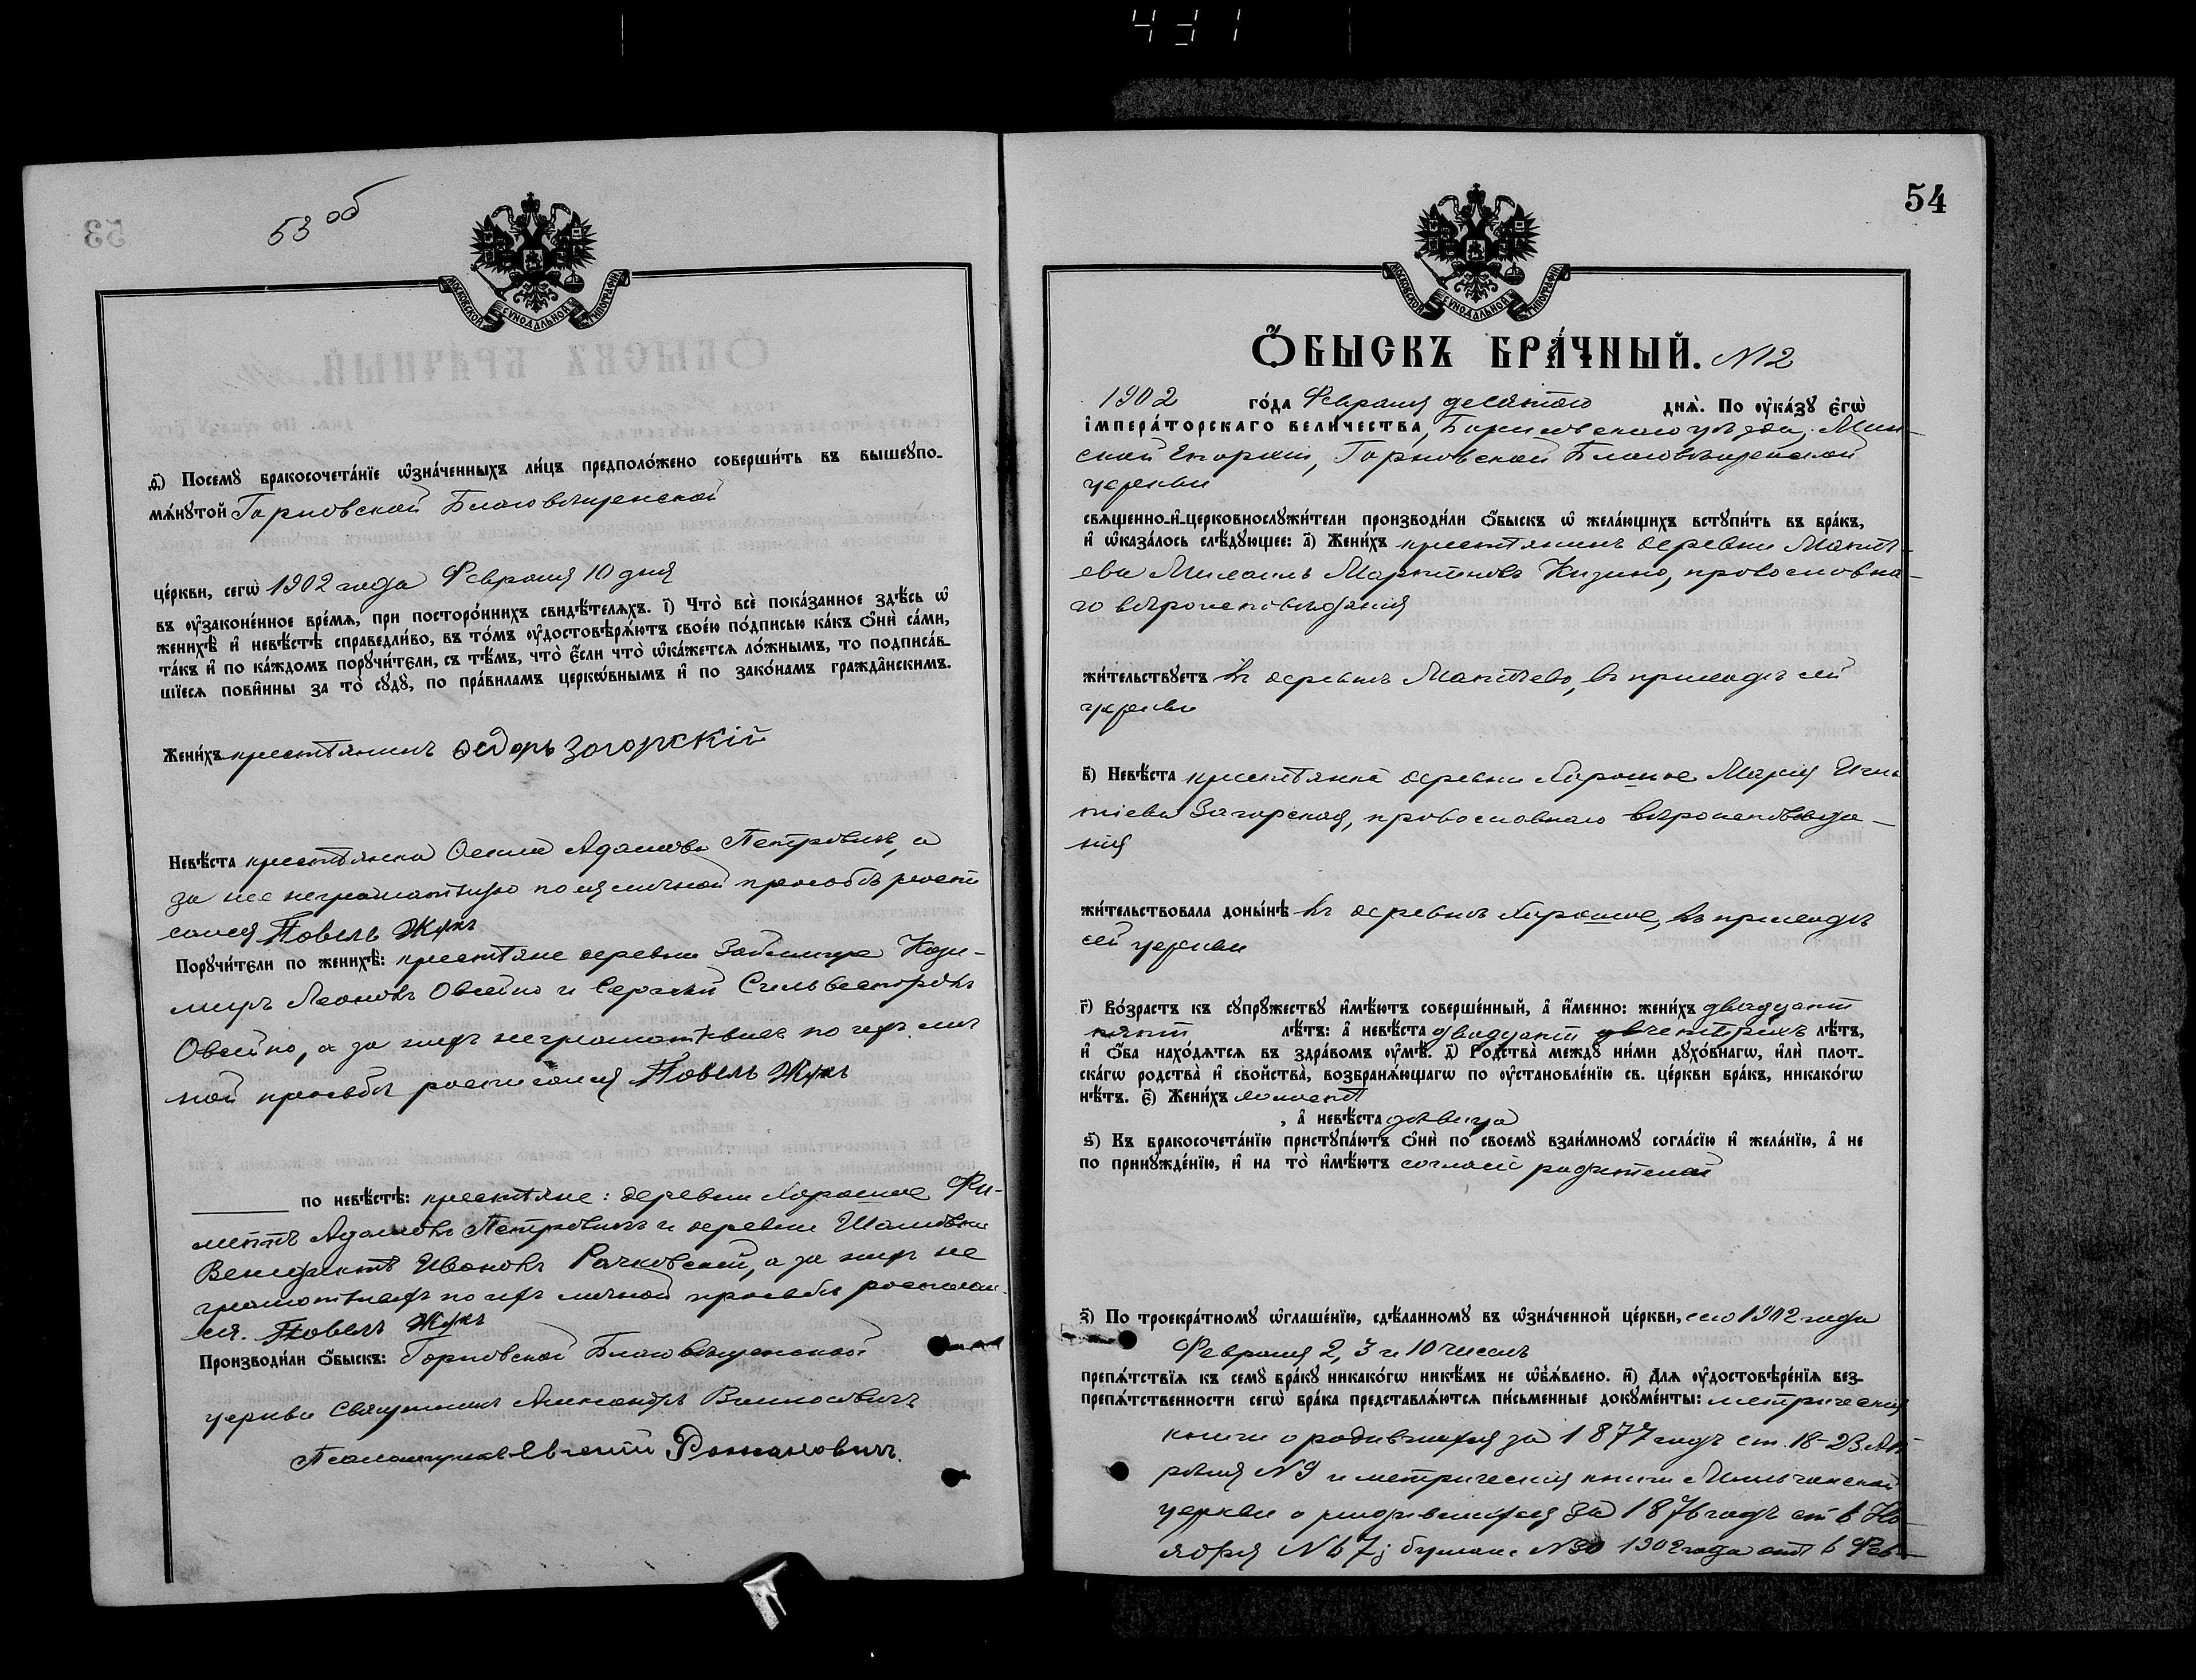 431
53 об
53
МОСКОВСКОЙ СѴНОДАЛЬНОЙ ТИПОГРАФІИ
ѳ҃) Посемꙋ бракосочета́нїе ѡ҆зна́ченныхъ ли́цъ предполо́жено соверши́ть въ вышеꙋпо-
мѧ́нꙋтой Горновской Благовѣщенской
це́ркви, сегѡ̀ 1902 года Февраля 10 дня
въ ᲂу҆зако́ненное вре́мѧ, при посторо́ннихъ свидѣ́телѧхъ. і҃) Что̀ всѐ пока́занное здѣ́сь ѡ҆
женихѣ̀ и҆ невѣ́стѣ справедли́во, въ то́мъ ᲂу҆достовѣрѧ́ютъ свое́ю по́дписью ка́къ ѻ҆нѝ са́ми,
та́къ и҆ по ка́ждомъ порꙋчи́тели, съ тѣ́мъ, что̀ є҆́сли что̀ ѡ҆ка́жетсѧ ло́жнымъ, то подписа́в-
шїесѧ пови́нны за то̀ сꙋдꙋ̀, по пра́виламъ церко́внымъ и҆ по зако́намъ гражда́нскимъ.
Жени́хъ крестьянинъ Ѳедоръ Загорскій
Невѣ́ста крестьянка Адамова Петровичъ, а
за нее неграмотную по ея личной просьбѣ роспи
сался Павелъ Жукъ
Порꙋчи́тели по женихѣ̀: крестьяне деревни Кази-
миръ Леоновъ Овсейко и Сергѣй Сильвестровъ
Овсейко, а за нихъ неграмотныхъ по ихъ лич
ной просьбѣ росписался Павелъ Жукъ
по невѣ́стѣ: крестьяне: деревни Хорошее
Адамовъ Петровичъ и деревни
Венедиктъ Ивановъ Рачковскій, а за нихъ не
грамотныхъ по ихъ личной просьбѣ росписал
ся. Павелъ Жукъ
Производи́ли ѻ҆́быскъ: Горновской Благовѣщенской
церкви Священникъ Александръ
Псаломщикъ Евгеній Романовичъ.
54
МОСКОВСКОЙ СѴНОДАЛЬНОЙ ТИПОГРАФІИ
Ѻ҆́БЫСКЪ БРА́ЧНЫЙ. №12
1902 го́да Февраля десятаго днѧ̀. По ᲂу҆ка́зꙋ є҆гѡ̀
і҆мпера́торскагѡ вели́чества, Борисовскаго уѣзда, Мин-
ской Епархіи, Горновской Благовѣщенской
церкви
свѧще́нно-и҆-церковнослꙋжи́тели производи́ли ѻ҆́быскъ ѡ҆ жела́ющихъ встꙋпи́ть въ бра́къ,
и҆ ѡ҆каза́лось слѣ́дꙋющее: а҃) Жени́хъ крестьянинъ деревни
Михаилъ Мартиновъ православна-
го вѣроисповѣданія
жи́тельствꙋетъ въ деревнѣ въ приходѣ сей
церкви
в҃) Невѣ́ста крестьянка деревни Хорошее Марія Игна
тіева Загорская, православнаго вѣроисповѣда-
нія
жи́тельствовала доны́нѣ въ деревнѣ Хорошее, въ приходѣ
сей церкви
г҃) Во́зрастъ къ сꙋпрꙋ́жествꙋ и҆мѣ́ютъ соверше́нный, а҆ и҆́менно: жени́хъ двадцати
пяти лѣ́тъ: а҆ невѣ́ста двадцати четырехъ лѣ́тъ,
и҆ ѻ҆́ба нахо́дѧтсѧ въ здра́вомъ ᲂу҆мѣ̀. д҃) Родства̀ междꙋ ни́ми дꙋхо́внагѡ, и҆лѝ плот-
ска́гѡ родства̀ и҆ сво́йства̀, возбранѧ́ющагѡ по ᲂу҆становле́нїю св. це́ркви бра́къ, никако́гѡ
нѣ́тъ. є҃) Жени́хъ холостъ
, а҆ невѣ́ста дѣвица
ѕ҃) Къ бракосочета́нїю пристꙋпа́ютъ ѻ҆нѝ по своемꙋ̀ взаи́мномꙋ согла́сїю и҆ жела́нїю, а҆ не
по принꙋжде́нїю, и҆ на то̀ и҆мѣ́ютъ согласіе родителей
з҃) По троекра́тномꙋ ѡ҆глаше́нїю, сдѣ́ланномꙋ въ ѡ҆зна́ченной це́ркви, сего 1902 года
Февраля 2, 3 и 10 числъ
препѧ́тствїѧ къ семꙋ̀ бра́кꙋ никако́гѡ никѣ́мъ не ѡ҆б̾ѧ́влено. и҃) Длѧ ᲂу҆достовѣре́нїѧ без-
препѧ́тственности сегѡ̀ бра́ка представлѧ́ютсѧ пи́сьменные докꙋме́нты: метрическія
книги о родившихся за 1877 годъ ст. 18-23 Ап
рѣля №9 и метрическія книги
церкви о родившихся за 1876 годъ ст 6 Но
ября №67; бумаг №30 1902 года отъ 6 Фев-